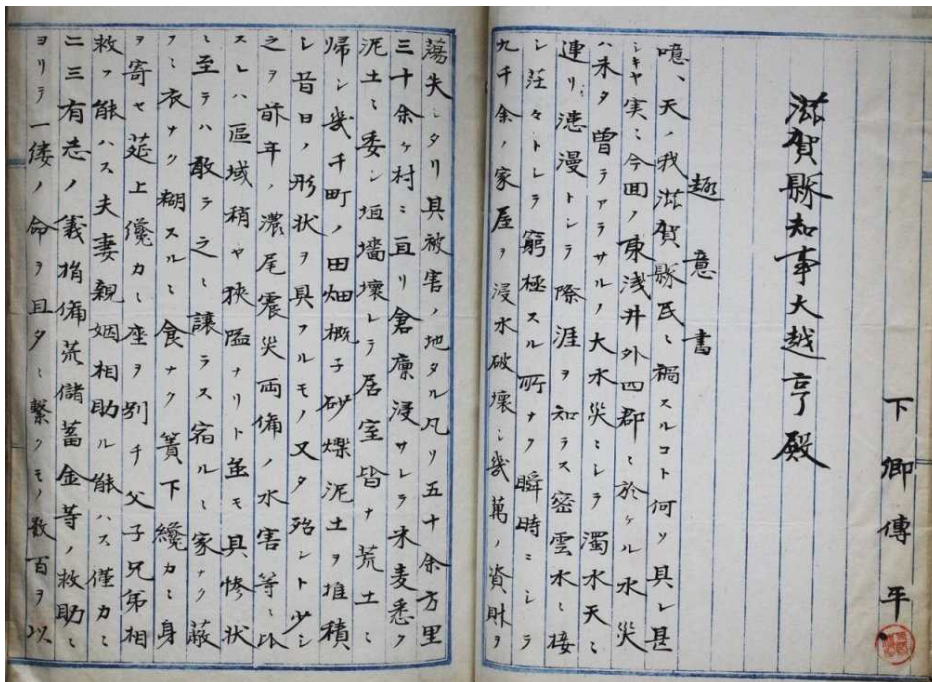 下郷傳平
滋賀縣知事大越亨殿
趣意書
噫、天ノ我滋賀縣民ニ禍スルコト何ソ具レ甚
シキヤ実ニ今回ノ東浅井外四郡ニ於ケル水災
ハ未タ曽テアラサルノ大水災ニシテ濁水天ニ
連リ漶漫トシテ際涯ヲ知ラス密雲水ニ接
シ茫々トシテ窮極スル所ナク瞬時ニシテ
九千余ノ家屋ヲ浸水破壊シ幾萬ノ資財ヲ
蕩失シタリ具被害ノ地タル凡リ五十余方里
三十余ヶ村ニ亘リ倉廩浸サレテ米麦悉ク
泥土ニ委シ垣墻壊レテ居室皆ナ荒土ニ
帰シ幾千町ノ田畑概子砂礫泥土ヲ堆積
シ昔日ノ形状ヲ具フルモノ又タ殆ント少シ
之ヲ前年ノ濃尾震災両備ノ水害等ニ比
スレハ區域稍や狭隘ナリト虽モ具惨状
ニ至テハ敢テ之ニ讓ラス宿ルニ家ナク蔽
フニ衣ナク糊スルニ食ナク簀下纔カニ身
ヲ寄セ莚上僅カニ座ヲ別チ父子兄弟相
救フ能ハス夫妻親姻相助ル能ハス僅カニ
二三有志ノ義捐備荒儲蓄金等ノ救助ニ
ヨリテ一僂ノ命ヲ旦夕ニ繋クモノ数百ヲ以